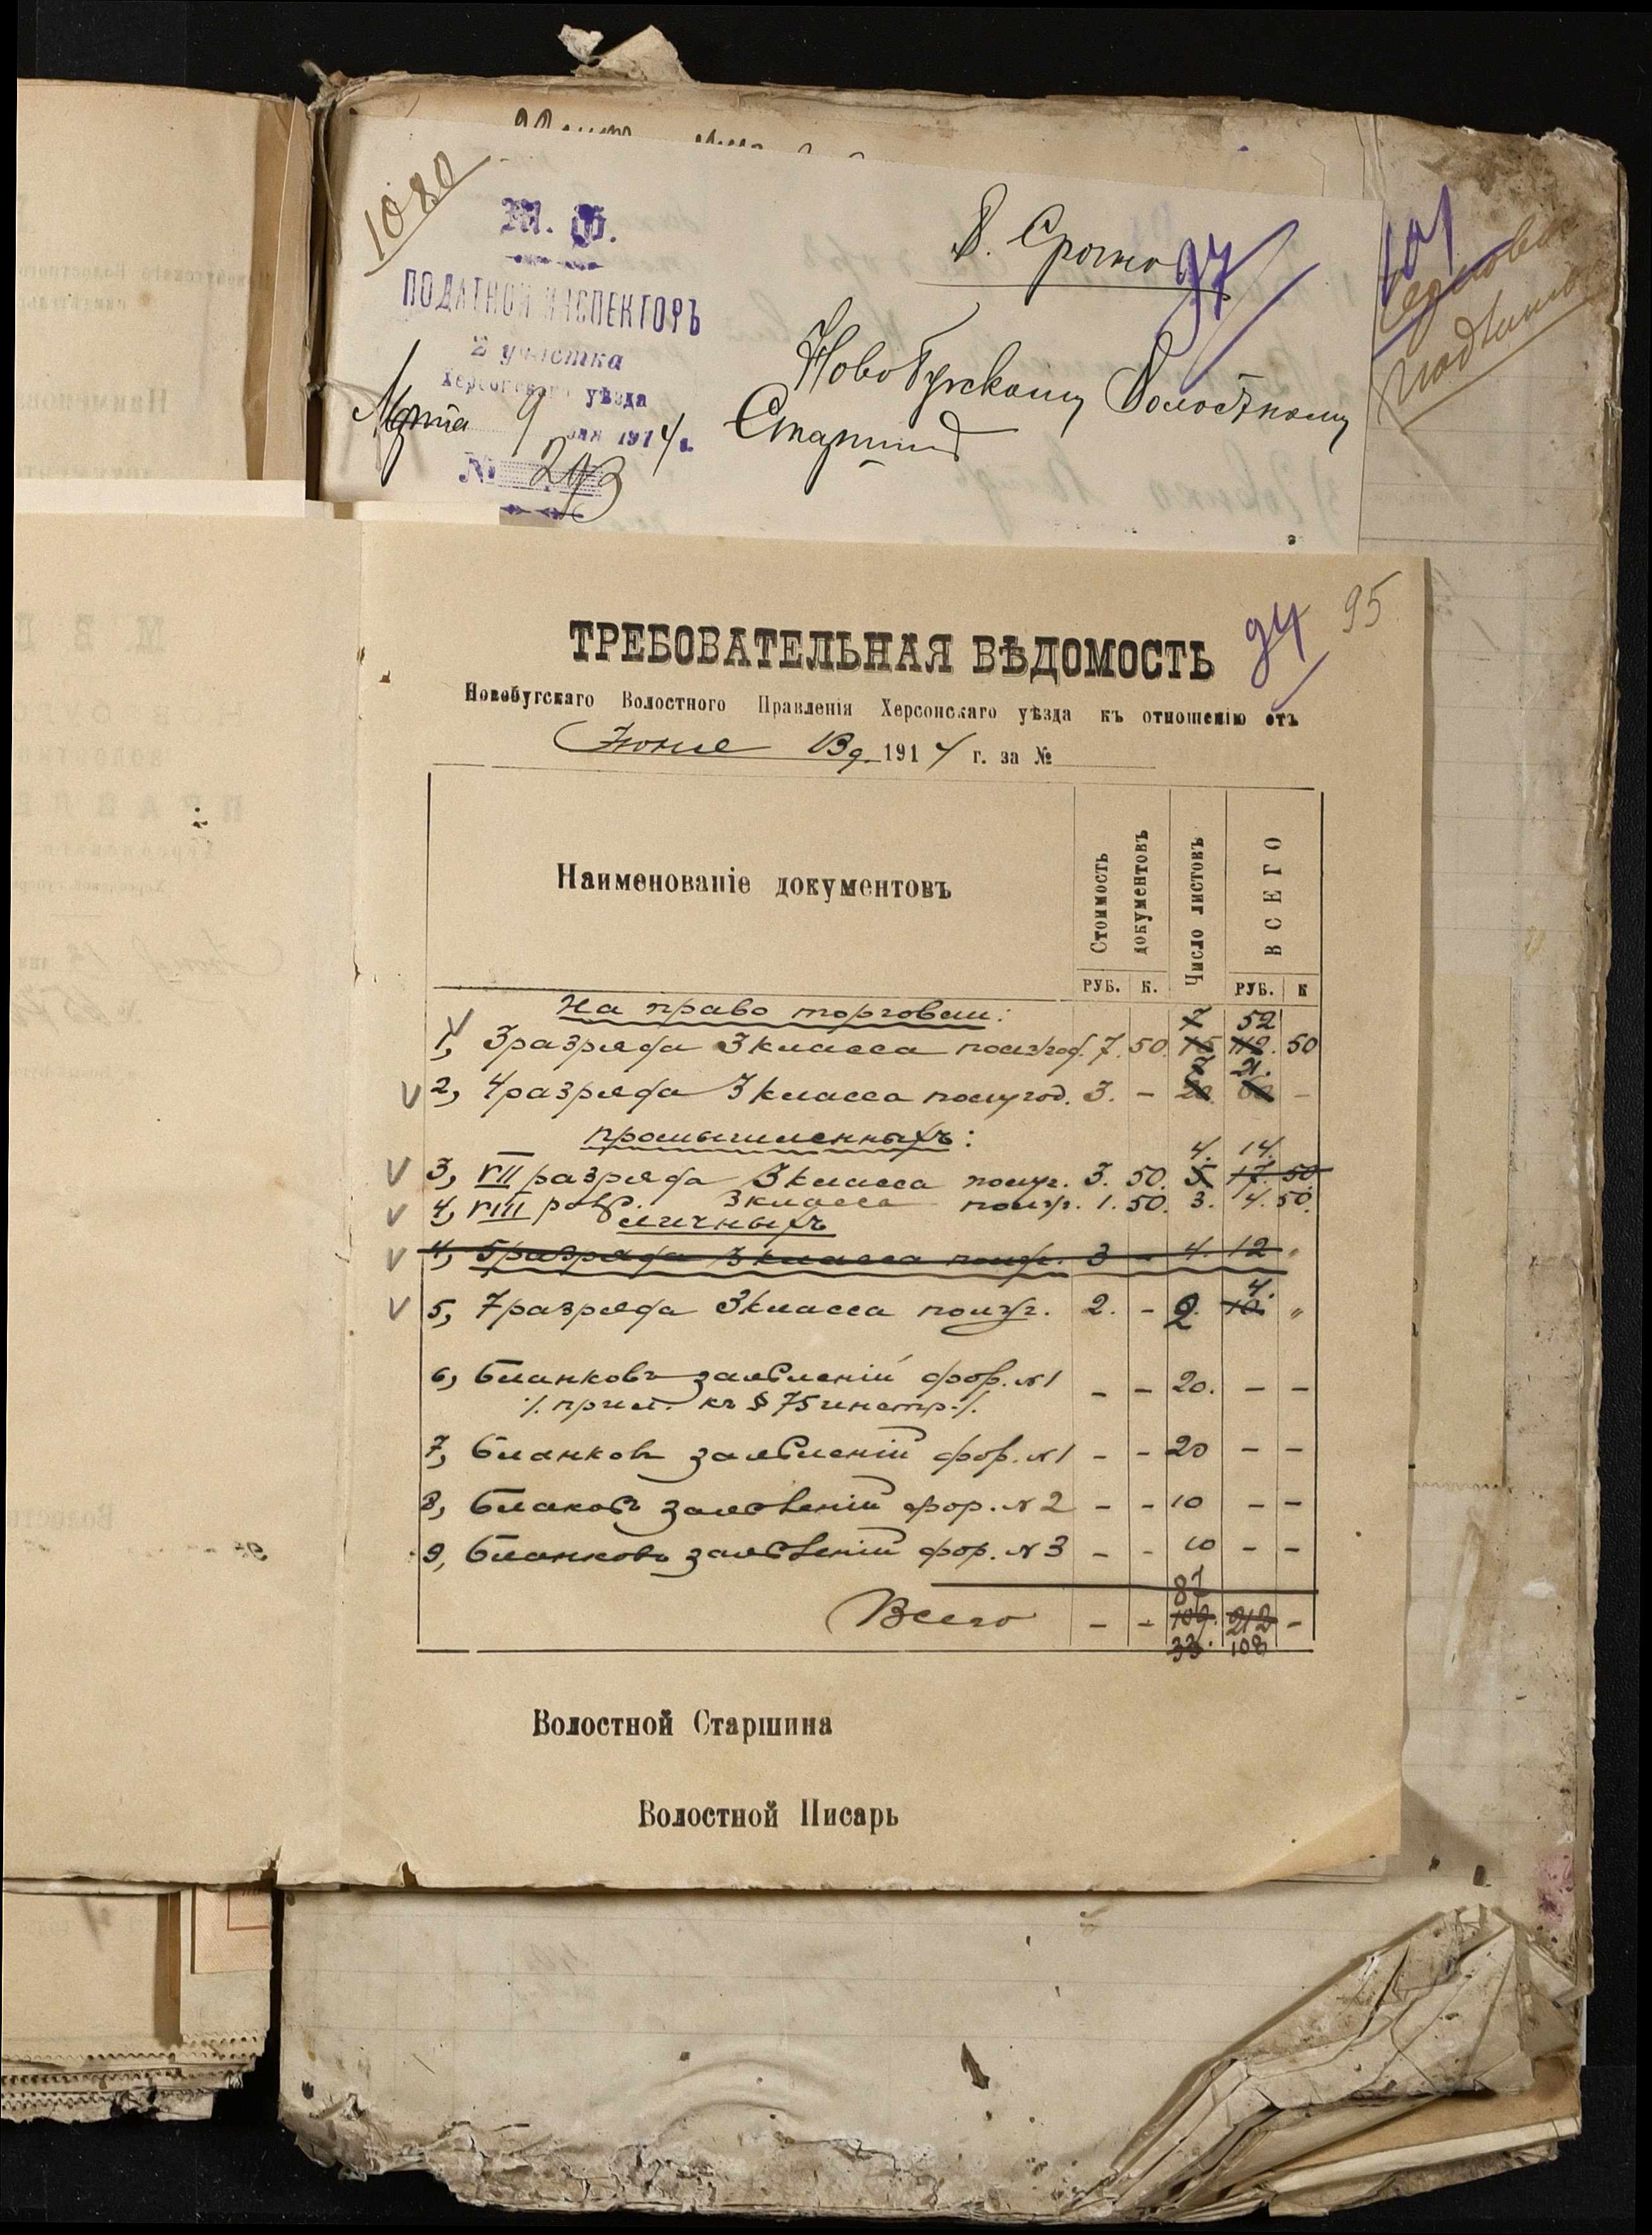 1080
М. Ф.
ПОДАТНОЙ ИНСПЕКТОРЪ
2 участка
Херсонскаго уѣзда
Марта 9 дня 1914 г.
№ 293
В. Срочно
97
101
НовоБугскому Волостному
Старшинѣ
94 95
ТРЕБОВАТЕЛЬНАЯ ВѢДОМОСТЬ
Новобугскаго Волостного Правленія Херсонскаго уѣзда къ отношенію отъ
Іюня 13 д. 1914 г. за №
Наименованіе документовъ Стоимость документовъ Число листовъ ВСЕГО
РУБ. К. РУБ. К
На право торговли: 7 52
1, 3 разряда 3 класса полугод. 7. 50. 15 112. 50
7 21.
2, 4 разряда 3 класса полугод. 3. - 20 60 -
промышленныхъ:
4. 14.
3, VII разряда 3 класса полуг. 3. 50. 5 17. 50
4, VIII разр. 3 класса полуг. 1. 50. 3. 4. 50.
личныхъ
4, 5 разряда 3 класса полуг. 3 - 4. 12 "
4.
5, 7 разряда 3 класса полуг. 2. - 2. 10. "
6, Бланковъ заявленій фор. №1 - - 20. - -
/. прил. къ § 75 инстр. /.
7, Бланковъ заявленій фор. №1 - - 20 - -
8, Бланковъ заявленій фор. №2 - - 10 - -
9, Бланковъ заявленій фор. №3 - - 10 - -
87
Всего - - 109. 212 -
33. 108
Волостной Старшина
Волостной Писарь